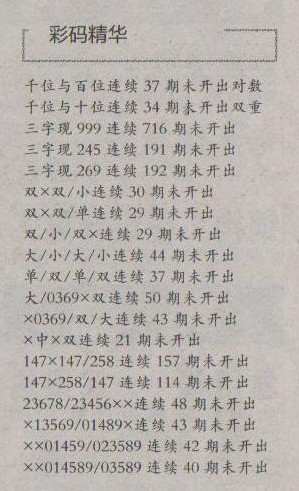 彩码精华
千位与百位连续 37 期未开出对数
千位与十位连续 34 期未开出双重
三字现 999 连续 716 期未开出
三字现 245 连续 191 期未开出
三字现 269 连续 192 期未开出
双×双/小连续 30 期未开出
双×双/单连续 29 期未开出
双/小/双×连续 29 期未开出
大/小/大/小连续 44 期未开出
单/双/单/双连续 37 期未开出
大/0369×双连续 50 期未开出
×0369/双/大连续 43 期未开出
×中×双连续 21 期未开出
147×147/258 连续 157 期未开出
147×258/147 连续 114 期未开出
23678/23456××连续 48 期未开出
×13569/01489×连续 43 期未开出
××01459/023589 连续 42 期未开出
××014589/03589 连续 40 期未开出